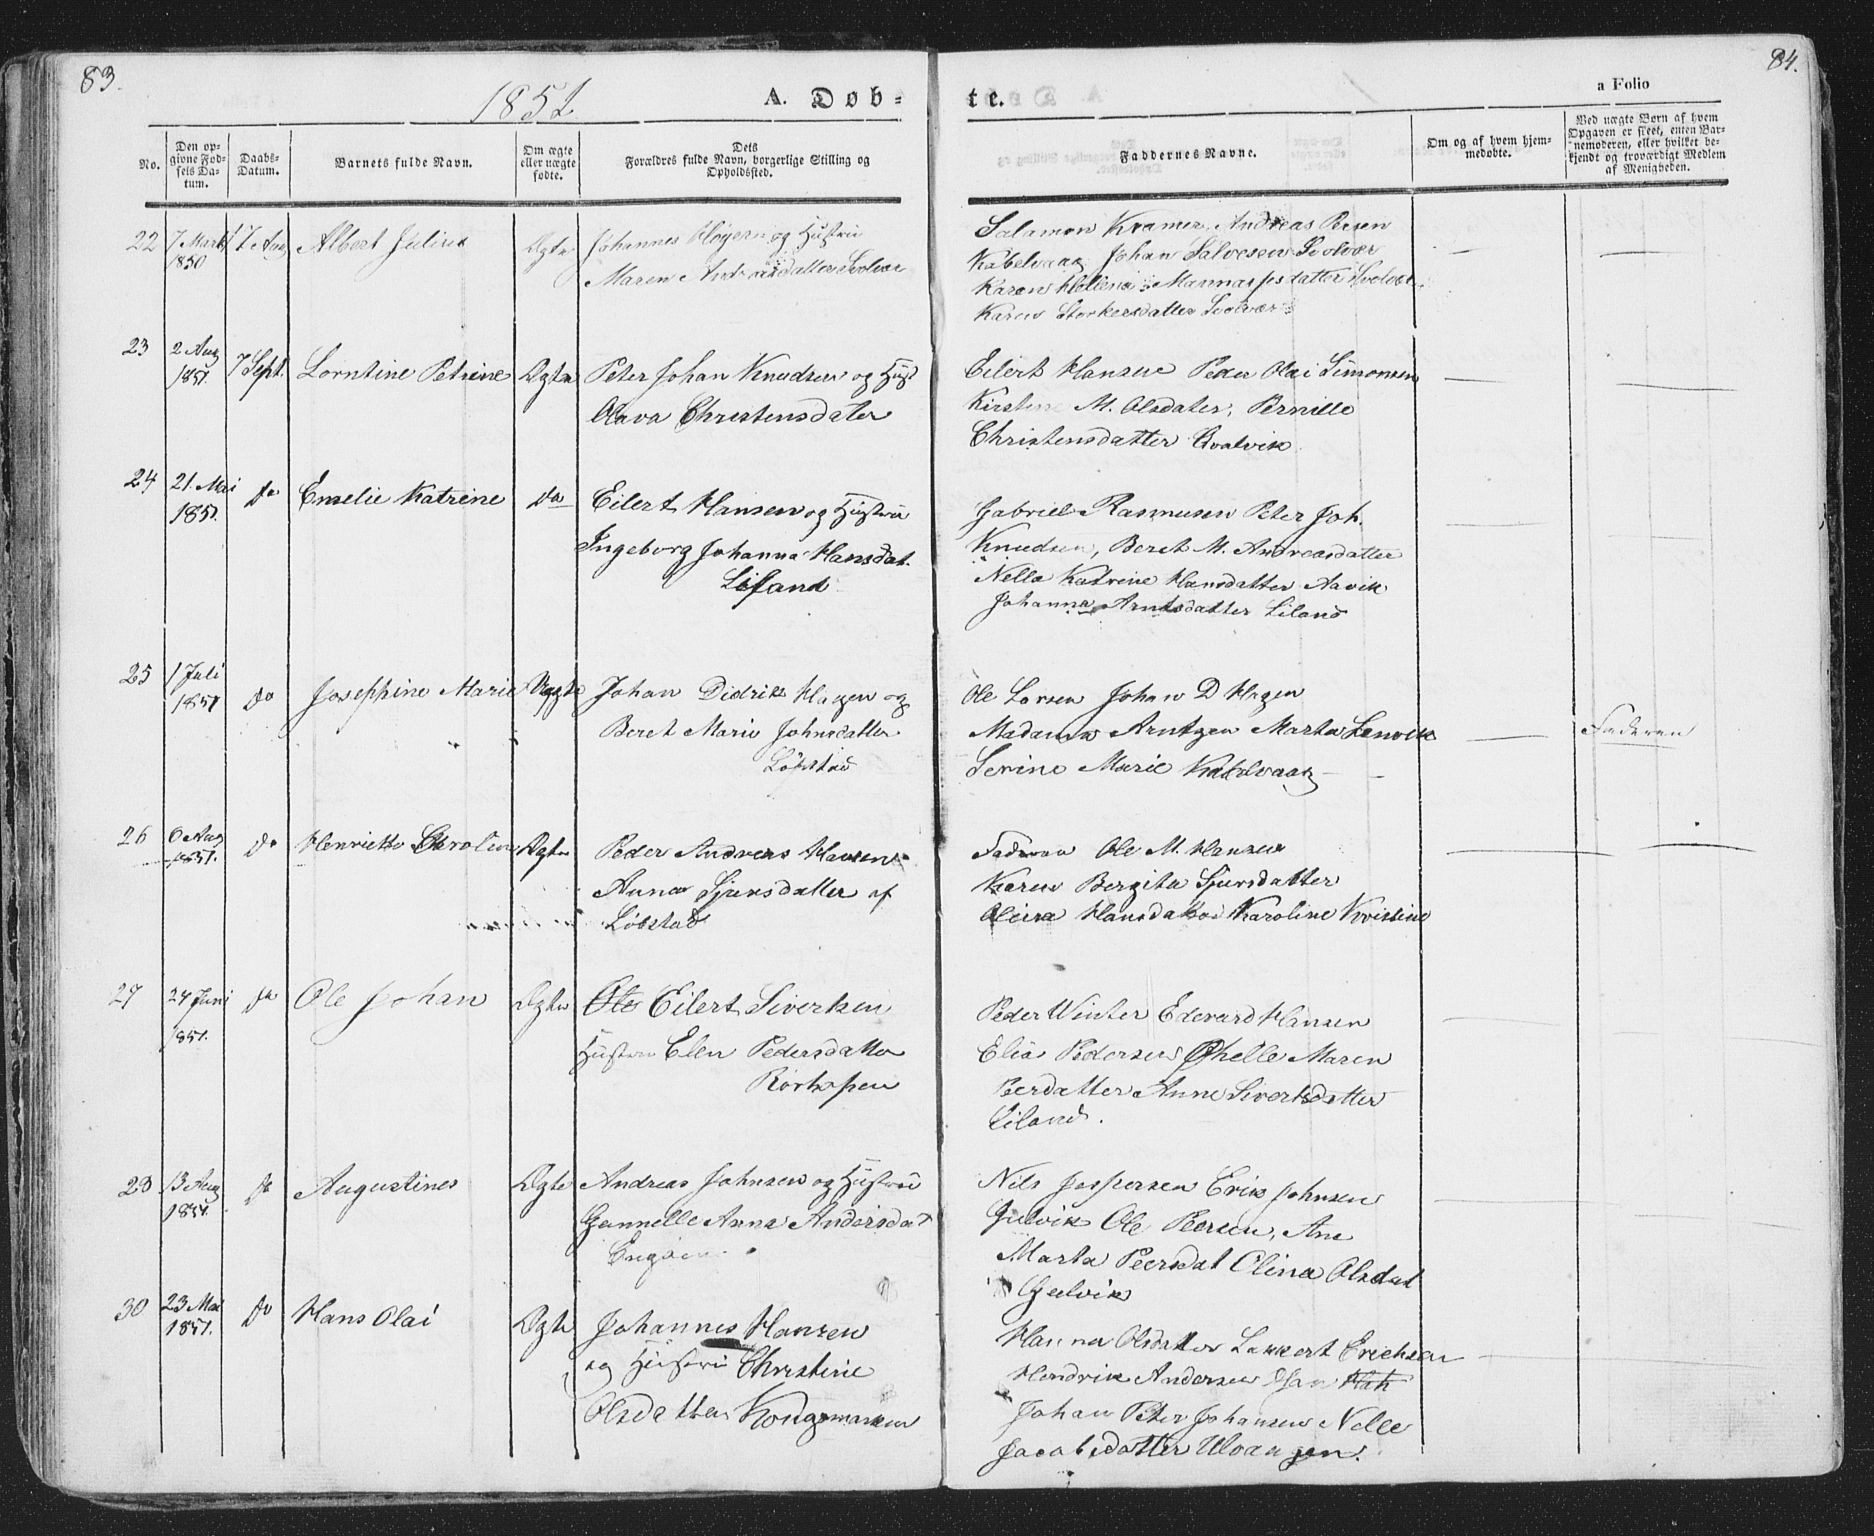 83.
84.
1851.
A. Døb-
te.
a Folio
No.
Den op-
givne Fød-
sels Da-
tum.
Daabs-
Datum.
Barnets fulde Navn.
Om ægte
eller uægte
fødte.
Dets
Forældres fulde Navn, borgerlige Stilling og
Opholdssted.
Faddernes Navne.
Om og af hvem hjem-
medøbte.
Ved uægte Børn af hvem
Opgaven er skeet, enten Bar-
nemoderen, eller hvilket be-
kjendt og troværdigt Medlem
af Menigheden.
22 7 Marts 17 Aug Albert Julius Ægte Johannes og Hustru
1850
Maren Andreasdatter Svolvær
Salamon Kramer, Andreas
Kabelvaag Johan Salvesen Svolvær
Karen Hellena Svolvær
Karen Storkersdatter Svolvær
23 2 Aug 7 Sept. Lorntine Petrine Ægte Peter Johan Knudsen og Hust
1851.
Olava Christensdater
Eilert Hansen Peder Olai Simonsen
Kirstine M. Olsdater, Pernille
Christensdatter
24 21. Mai do Emelie Katrine do Eilert Hansen og Hustru
1851.
Ingeborg Johanna Hansdat.
Liland
Gabriel Rasmusen Peter Joh.
Knudsen, Beret M. Andreasdatter
Nella Katrine Hansdatter Aavik
Johanna Arntsdatter Liland
25 1 Juli do Josephine Marie Uægte Johan Didrik Hagen og
1851
Beret Marie Johnsdatter
Løbstad
Ole Larsen Johan D Hagen
Madame Arntzen Marta Lenvik
Serine Marie Kabelvaag
Faderen
26 6 Aug do Henrikke Karoline Ægte Peder Andreas Hansen
1851.
Anna Sjursdatter af
Løbstad
Faderen Ole M. Hansen
Karen Bergita Sjursdatter
Hansdatter Karoline Kristine
27 24 Juni do Ole Johan Ægte Ole Eilert Sivertsen
1851.
Hustru Elen Pedersdatter
Rørhopen
Peder Winter Edevard Hansen
Elias Pedersen Maren
Peersdatter Anne Sivertsdatter
Liland.
28 13 Aug do Augustines Ægte Andreas Johnsen og Hustrue
1851.
Anna Andersdat
Nils Jespersen Erik Johnsen
Gulvik Ole Peersen, Ane
Marta Peersdat Elina Olsdat
Gulvik
30 23 Mai do Hans Olai Ægte Johannes Hansen
1851.
og Hustru Christine
Olsdatter Kongsmarken
Hanna Olsdatter Erichsen
Hendrik Andersen
Johan Peter Johansen Nelle
Jacobsdatter